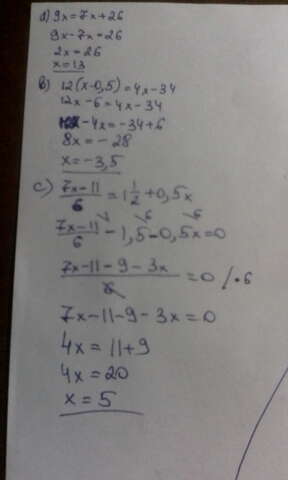 a) 9x=7x+26
9x-7x=26
2x=26
x=13
b) 12(x-0,5)=4x-34
12x-6=4x-34
-4x=-34+6
8x=-28
x=-3,5
c) 7x-11/6=1 1/2+0,5x
7x-11/6-1,5-0,5x=0
7x-11-9-3x/6=0 /·6
7x-11-9-3x=0
4x=11+9
4x=20
x=5